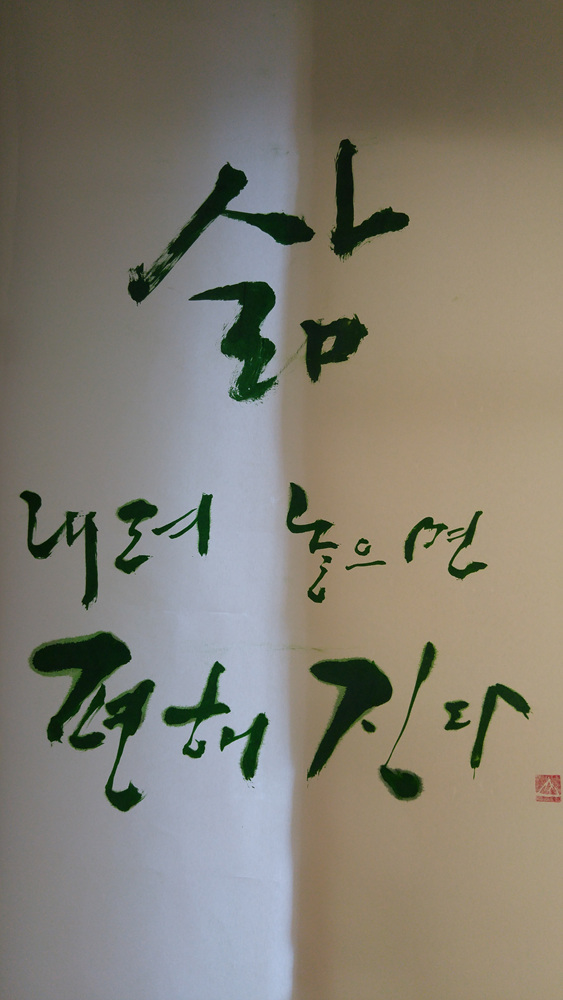 삶
내려 놓으면
편해 진다